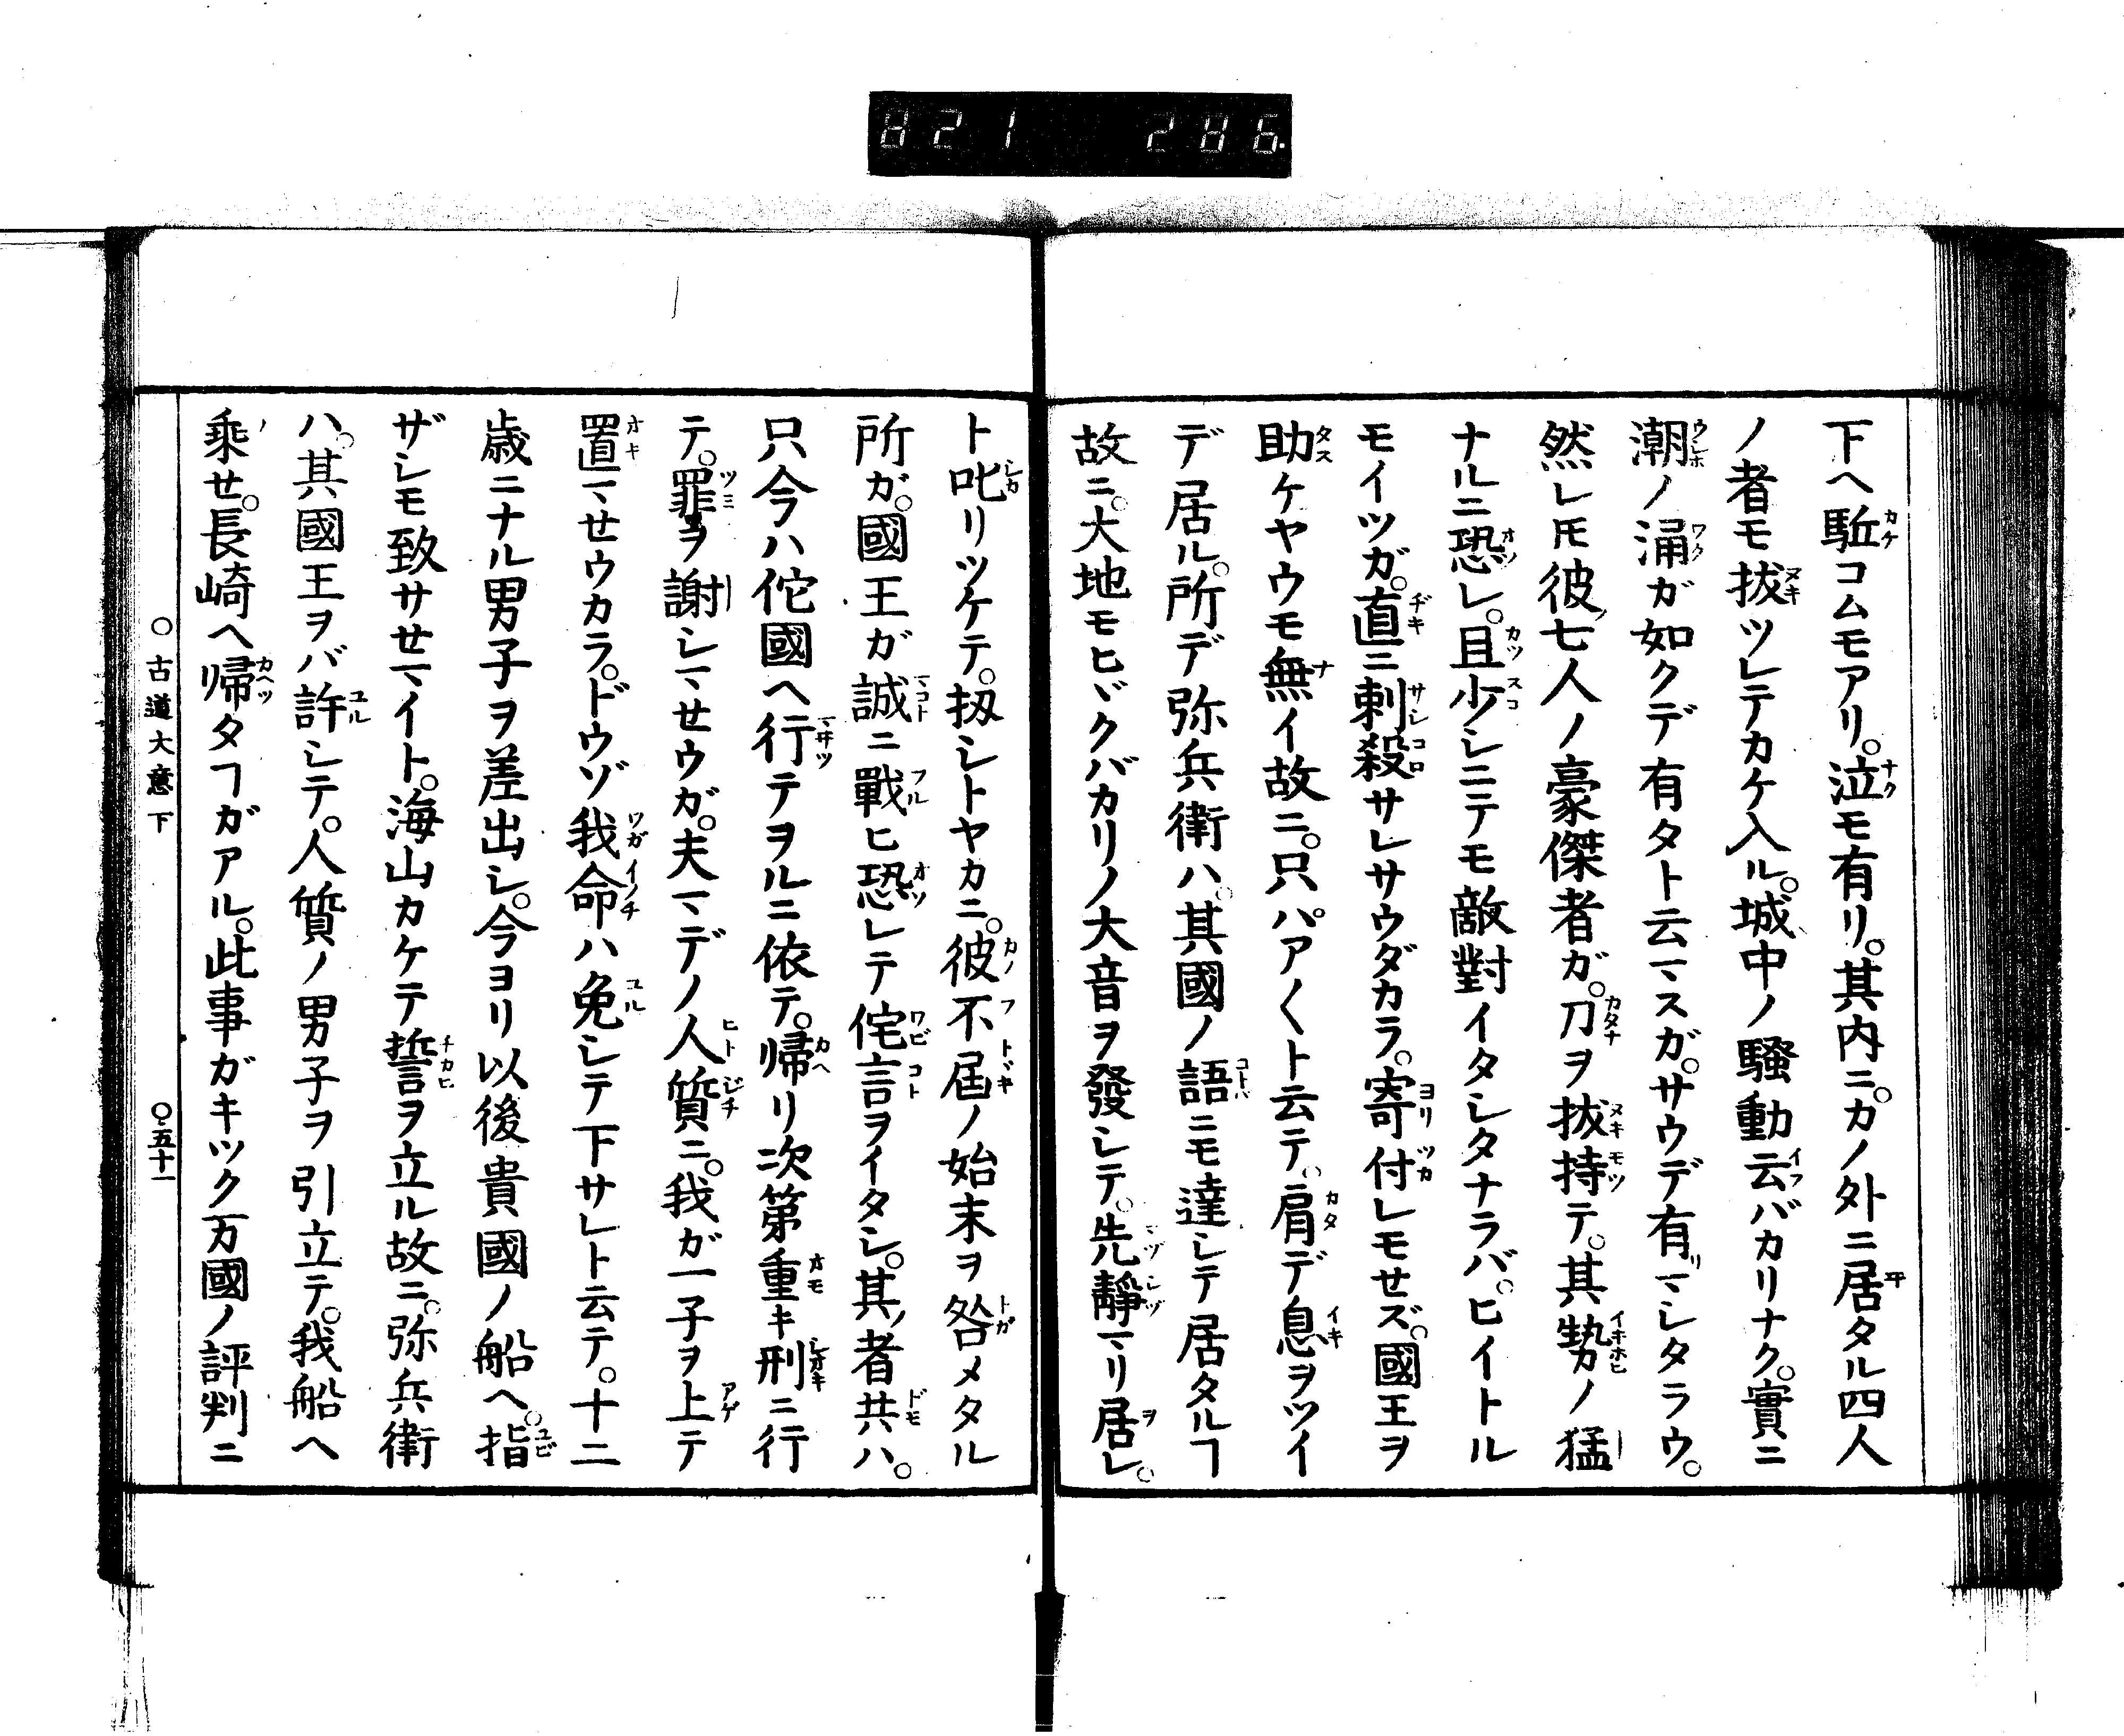 821 286
下ヘ駈コムモアリ。泣モ有リ。其内ニ。カノ外ニ居タル四人
ノ者モ抜ツレテカケ入ル。城中ノ騒動云バカリナク。實ニ
潮ノ涌ガ如クデ有タト云マスガ。サウデ有マシタラウ。
然レ𪜈彼七人ノ豪傑者ガ。刀ヲ抜持テ。其㔟ノ猛
ナルニ恐レ。且少シニテモ敵對イタシタナラバ。ヒイトル
モイツガ。直ニ刺殺サレサウダカラ。寄付レモせズ。國王ヲ
助ケヤウモ無イ故ニ。只パア〱ト云テ。肩デ息ヲツイ
デ居ル。所デ弥兵衛ハ。其國ノ語ニモ達シテ居タルヿ
故ニ。大地モヒヾクバカリノ大音ヲ發シテ。先靜マリ居レ。
ト叱リツケテ。扨シトヤカニ。彼不屆ノ始末ヲ咎メタル
所ガ。國王ガ誠ニ戰ヒ恐レテ侘言ヲイタシ。其者共ハ。
只今ハ佗國ヘ行テヲルニ依テ。帰リ次第重キ刑ニ行
テ。罪ヲ謝シマせウガ。夫マデノ人質ニ。我ガ一子ヲ上テ
置マせウカラ。ドウゾ我命ハ免シテ下サレト云テ。十二
歳ニナル男子ヲ差出シ。今ヨリ以後貴國ノ船ヘ。指
ザシモ致サせマイト。海山カケテ誓ヲ立ル故ニ。弥兵衛
ハ。其國王ヲバ許シテ。人質ノ男子ヲ引立テ。我船ヘ
乘せ。長崎ヘ帰タヿガアル。此事ガキツク万國ノ評判ニ
○古道大意下 ○五十一